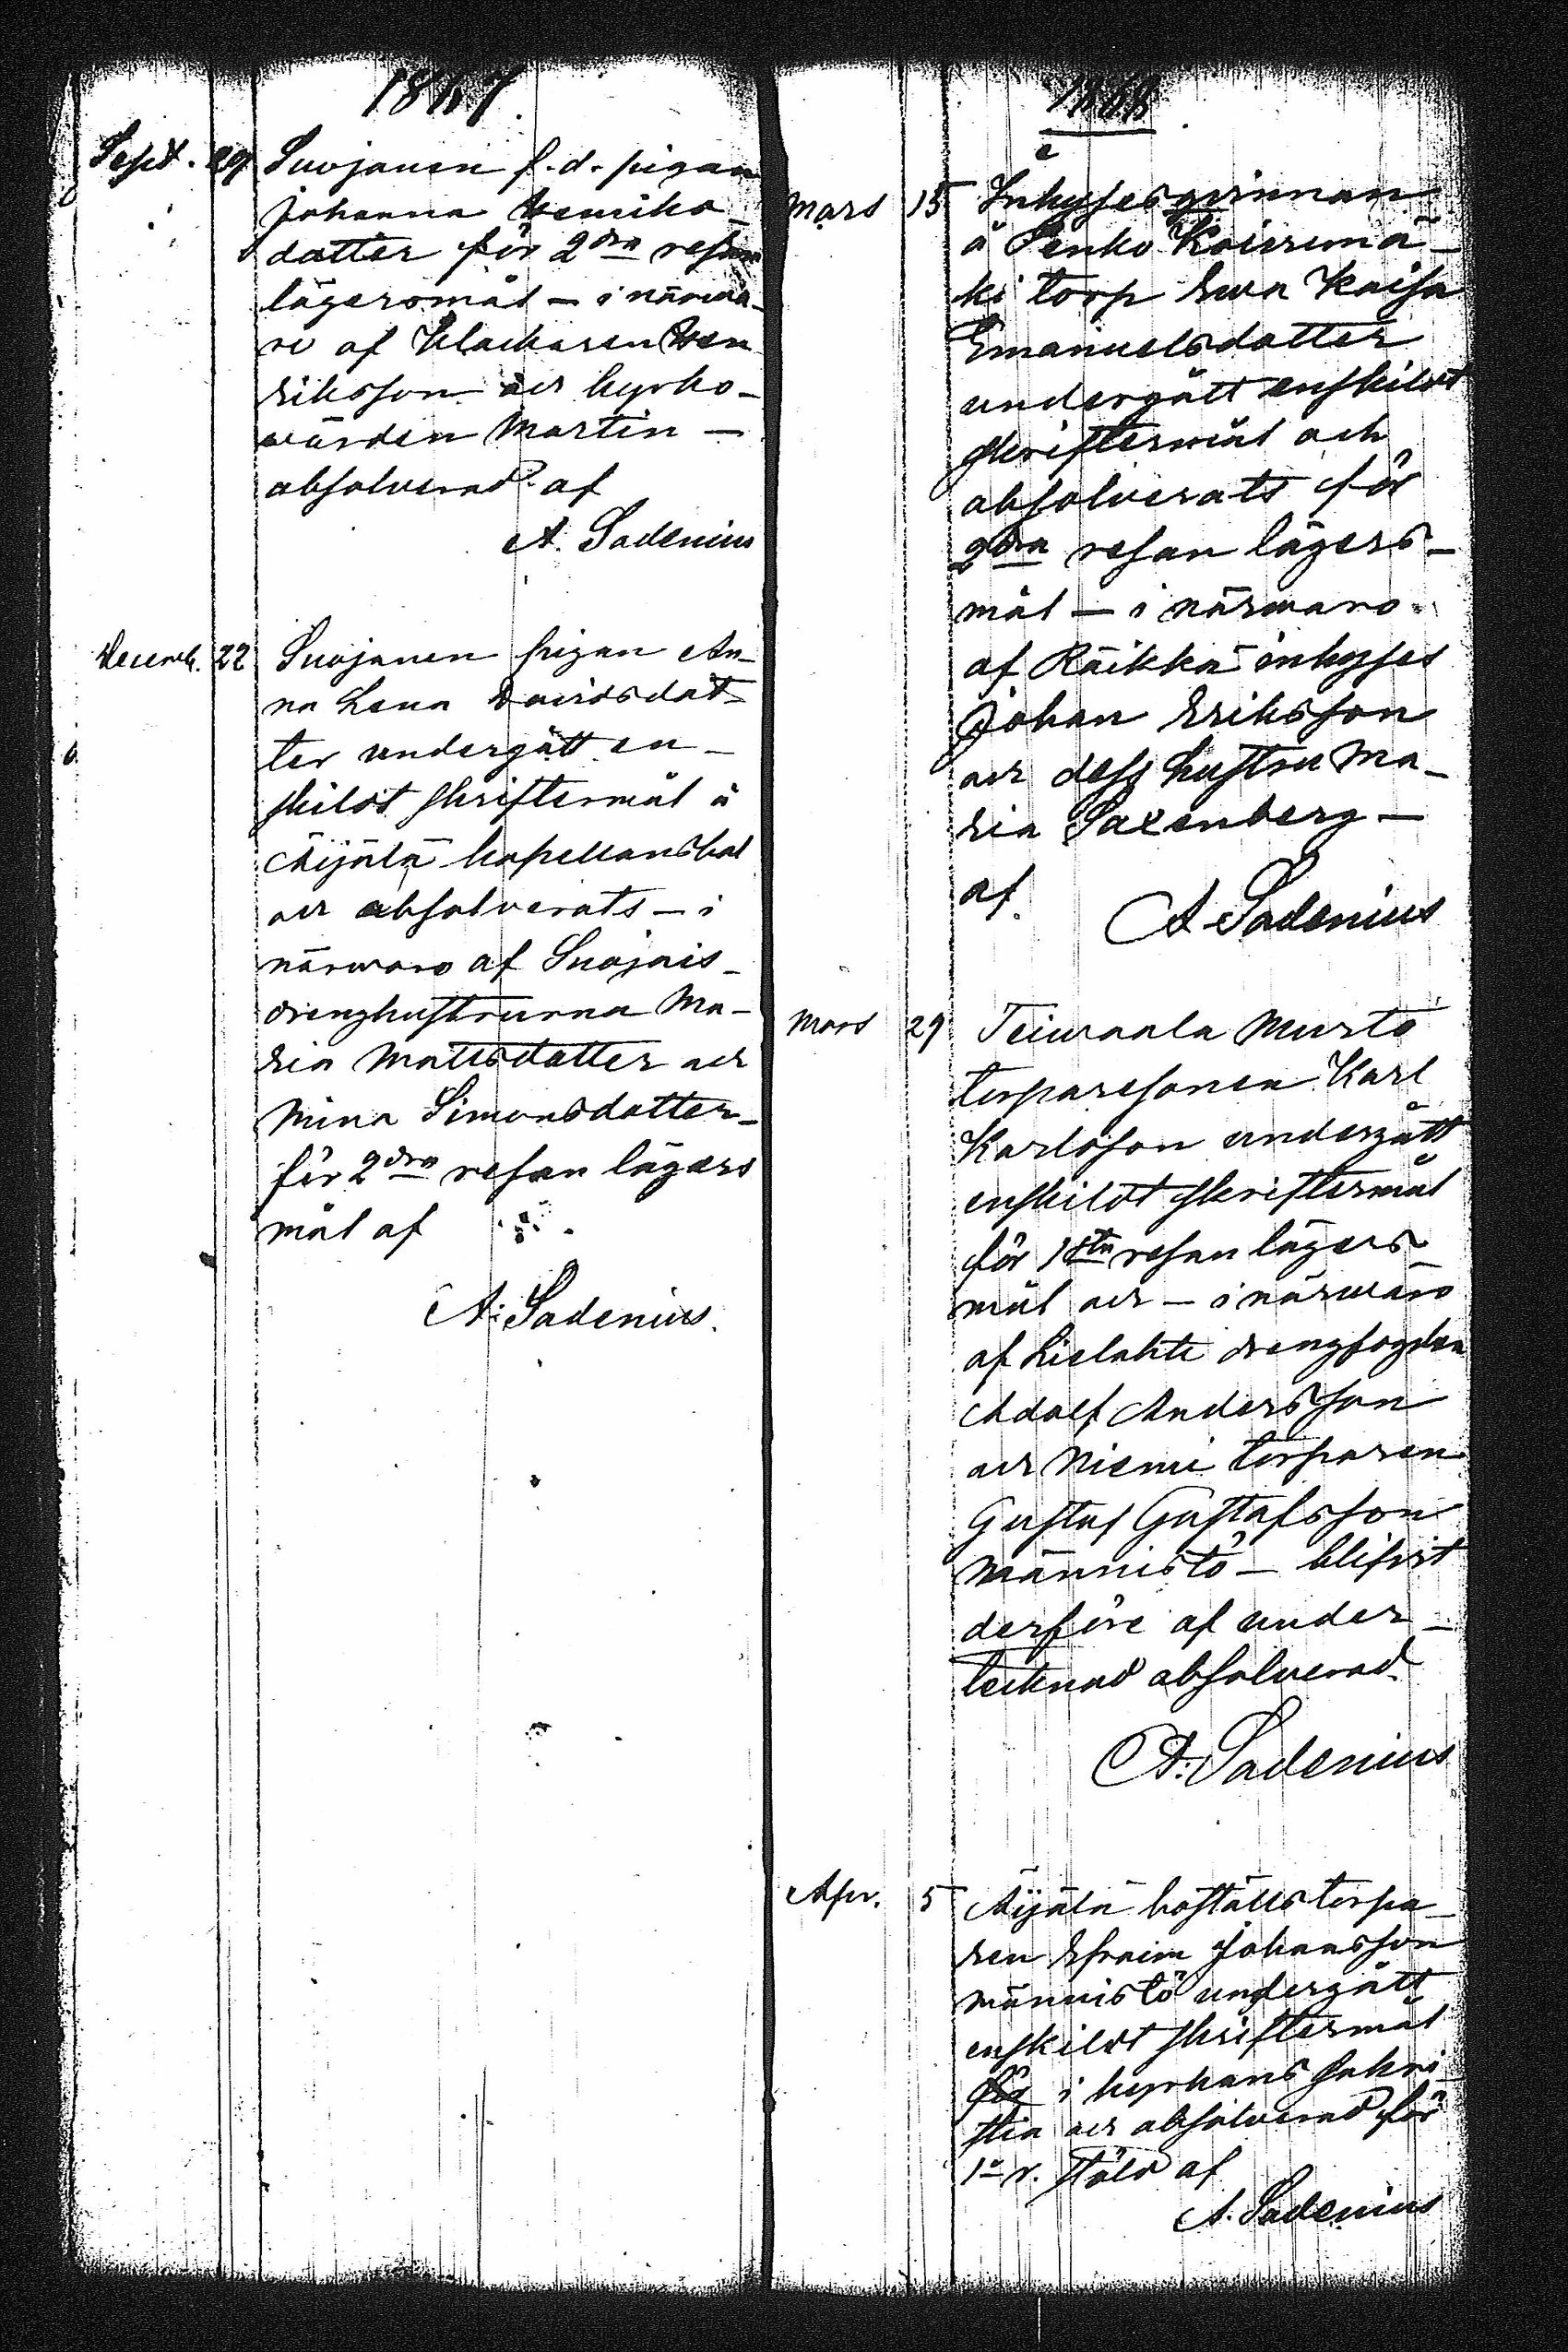 1867.
Sept. 29 Suojanen f. d. pigan
Johanna Henriks-
dotter för 2dra resan
lägersmål – i närva-
ro af Klockaren Hen
riksson och kyrko-
värden Martin –
absolverad af
A. Sadenius
Decemb. 22 Suojanen pigan An-
na Lena Davidsdot-
ter undergått en-
skildt skriftermål å
Äijälä kapellansbol
och absolverats – i
närwaro af Suojais-
drenghustrurna Ma-
ria Mattsdotter och
Mina Simonsdotter –
för 2dra resan lägers
mål af
A: Sadenius.
1868
Mars 15 Inhysesqvinnan
å Penko Koivumä-
ki torp Ewa Kaisa
Emanuelsdotter
undergått enskildt
skriftermål och
absolverats för
2dra resan lägers-
mål – i närwaro
af Räikkä inhyses
Johan Eriksson
och dess hustru Ma-
ria Saxenberg –
af
A Sadenius
Mars 29 Teiwaala Murto
torparesonen Karl
Karlsson undergått
enskildt skriftermål
för 1sta resan lägers-
mål och – i närwaro
af Lielahti drengfogden
Adolf Andersson
och Niemi torparen
Gustaf Gustafsson
Männistö – blifvit
derföre af under-
tecknad absolverad.
A: Sadenius
Apr. 5 Äijälä boställs torpa-
ren Efraim Johansson
Männistö undergått
enskildt skriftermål
för i kyrkans sakri-
stia och absolverad för
1a r. stöld af
A. Sadenius